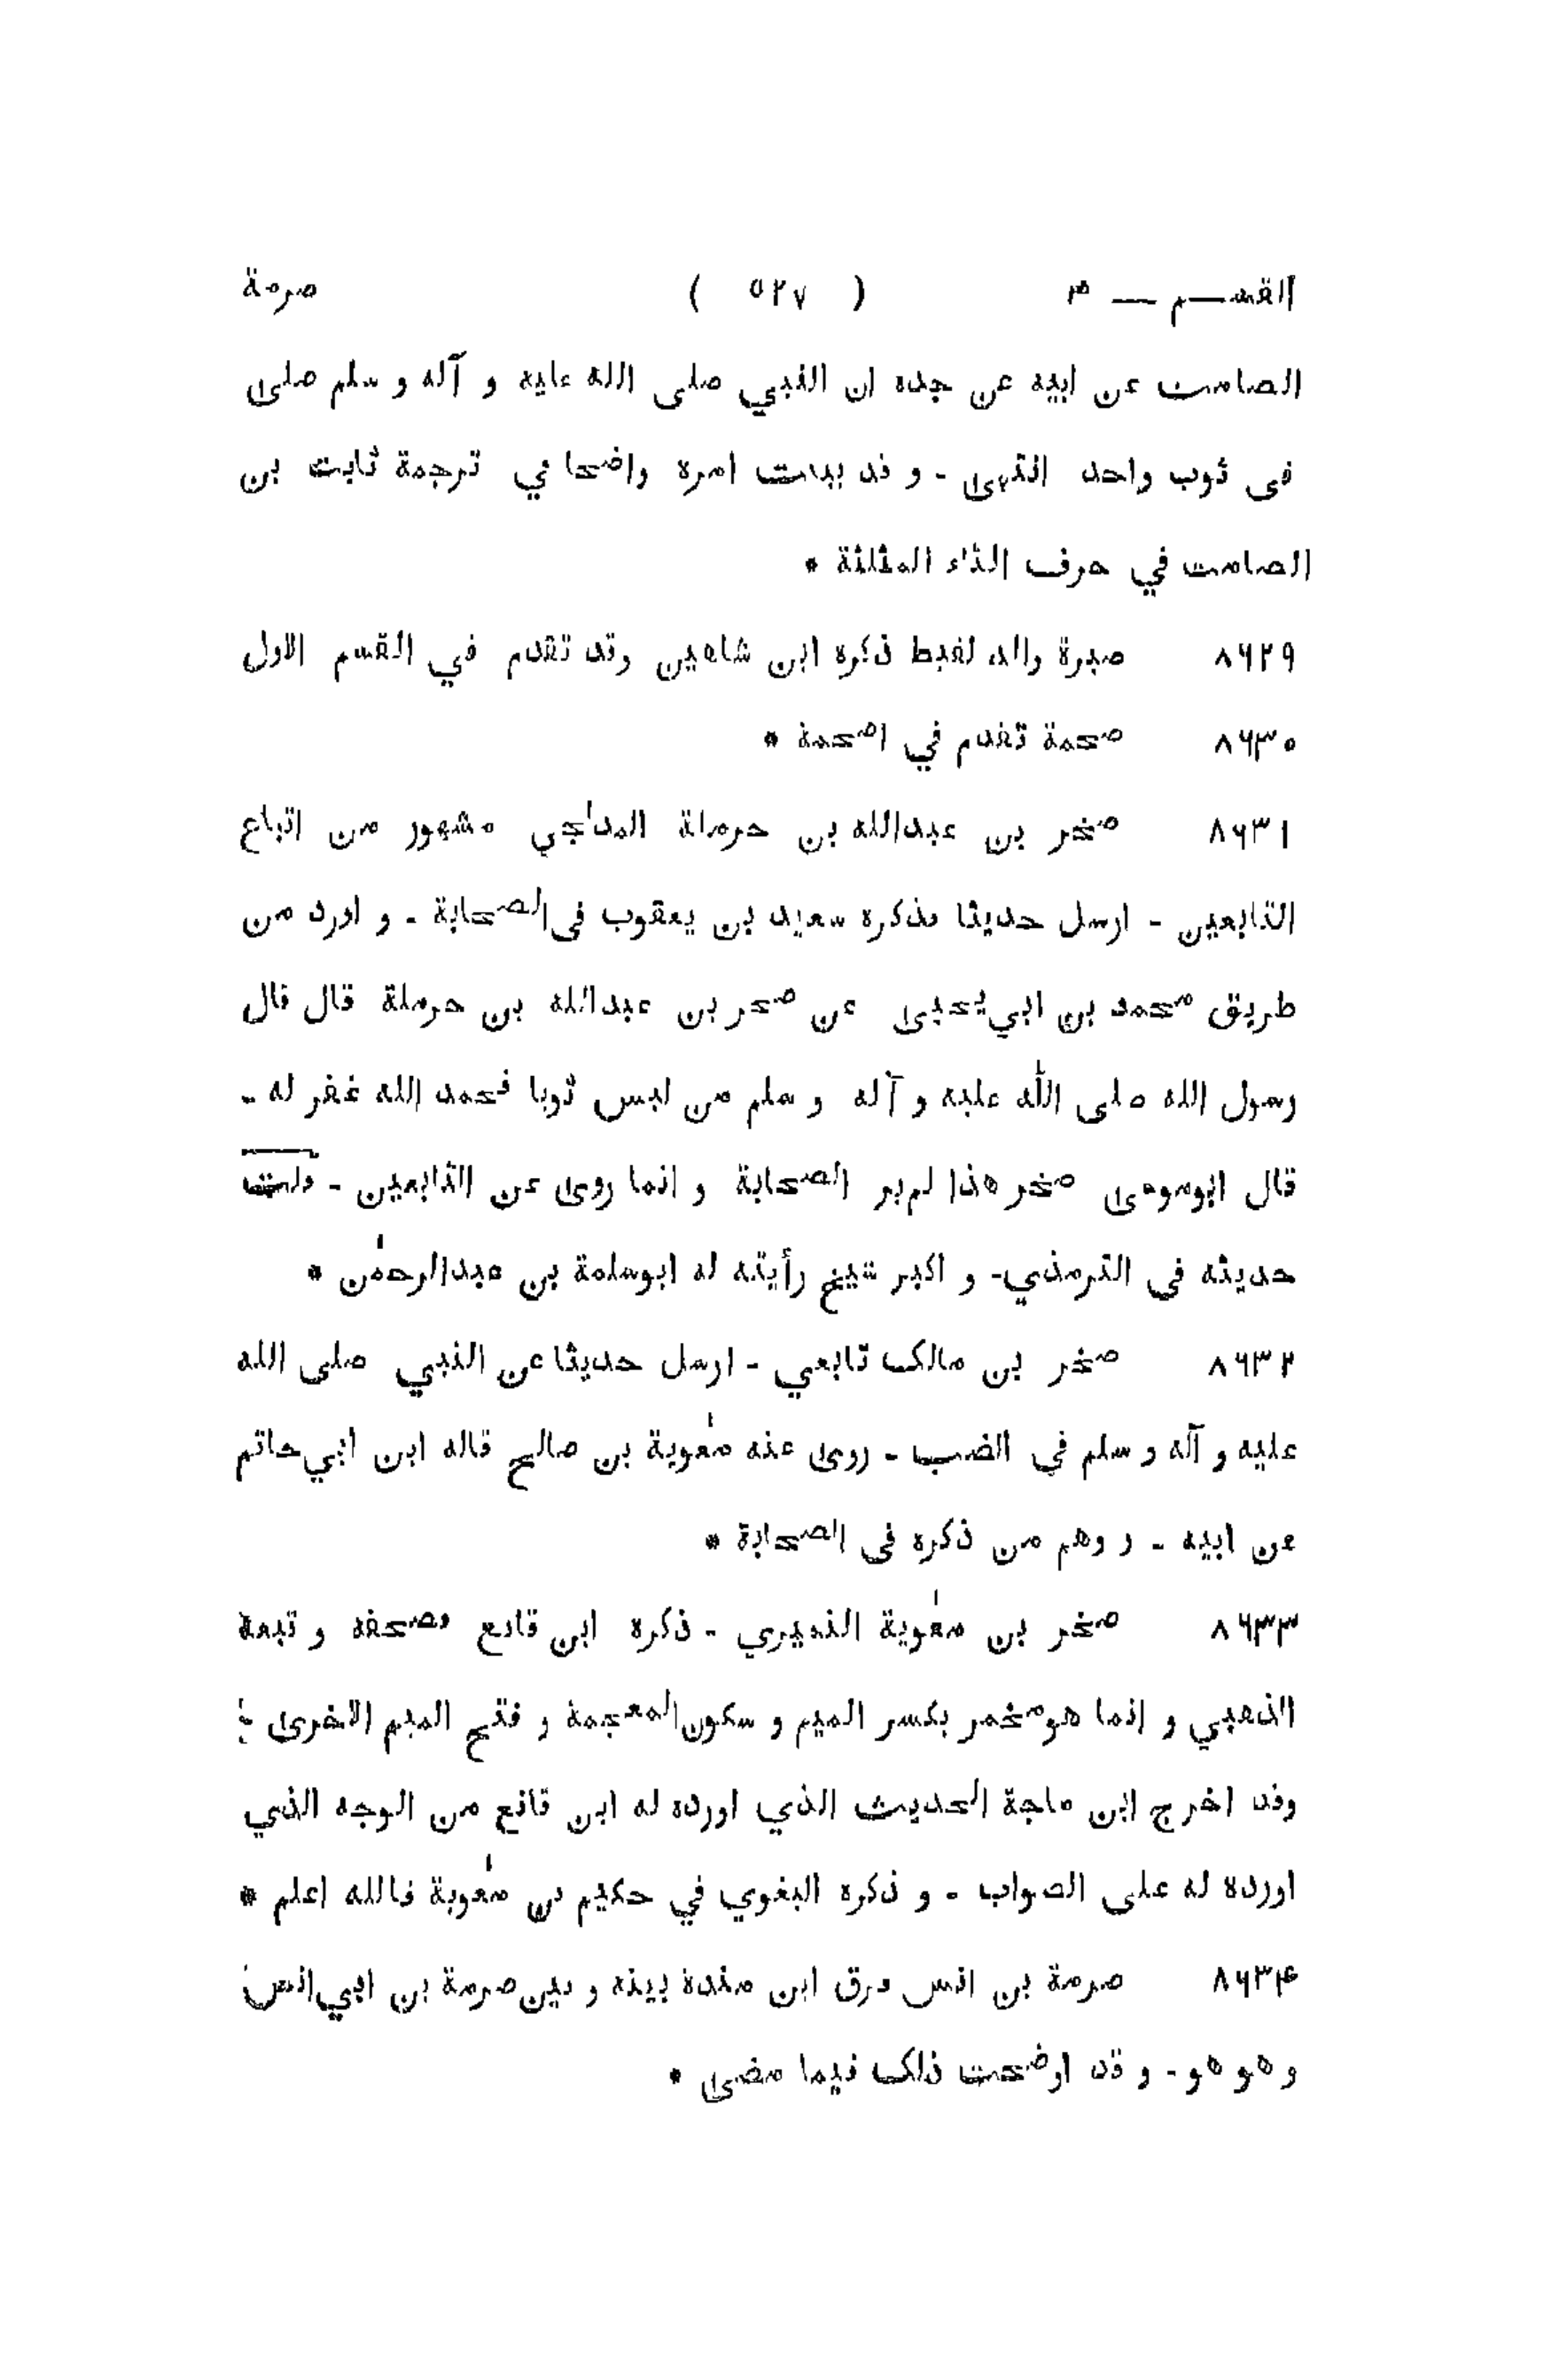 القســم — ۴ ( ٥٢٧ ) صرمة
الصامت عن ابيه عن جده ان النبي صلى الله عليه و آله و سلم صلى
فى ثوب واحد انتهى - و قد بينت امره واضحا في ترجمة ثابت بن
الصامت في حرف الثاء المثلثة *
٨٦٢٩ صبرة والد لقيط ذكره ابن شاهين وقد تقدم في القسم الاول
٨٦٣٠ صحمة تقدم في اصحمة *
٨٦٣١ صخر بن عبدالله بن حرملة المدلجي مشهور من اتباع
التابعين - ارسل حديثا فذكره سعيد بن يعقوب فى الصحابة - و اورد من
طريق محمد بن ابي يحيى عن صخر بن عبدالله بن حرملة قال قال
رسول الله صلى الله عليه و آله و سلم من لبس ثوبا فحمد الله غفر له -
قال ابوموسى صخر هذا لم ير الصحابة و انما روى عن التابعين - قلت
حديثه فى الترمذي - و اكبر شيخ رأيته له ابوسلمة بن عبدالرحمٰن *
٨٦٣٢ صخر بن مالك تابعي - ارسل حديثا عن النبي صلى الله
عليه و آله و سلم في الضب - روى عنه معٰوية بن صالح قاله ابن ابي حاتم
عن ابيه - و وهم من ذكره فى الصحابة *
٨٦٣٣ صخر بن معٰوية النميري - ذكره ابن قانع فصحفه و تبعه
الذهبي و انما هو مخمر بكسر الميم و سكون المعجمة و فتح الميم الاخرى
وقد اخرج ابن ماجة الحديث الذي اورده له ابن قانع من الوجه الذي
اورده له على الصواب - و ذكره البغوي في حكيم بن معٰوية فالله اعلم *
٨٦٣۴ صرمة بن انس فرق ابن مندة بينه و بين صرمة بن ابي انس
و هو هو - و قد اوضحت ذلك فيما مضى *